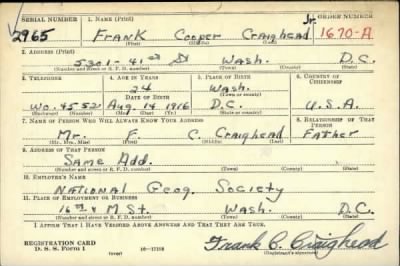 SERIAL NUMBER 1. NAME (Print) ORDER NUMBER
2965 FRANK Cooper Craighead Jr. 1670-A
(First) (Middle) (Last)
2. ADDRESS (Print)
5301-41st St Wash. D.C.
(Number and street or R. F. D. number) (Town) (County) (State)
3. TELEPHONE 4. AGE IN YEARS 5. PLACE OF BIRTH 6. COUNTRY OF CITIZENSHIP
24 Wash.
DATE OF BIRTH (Town or county)
WO. 4552 Aug. 14 1916 D.C. U.S.A.
(Exchange) (Number) (Mo.) (Day) (Yr.) (State or country)
7. NAME OF PERSON WHO WILL ALWAYS KNOW YOUR ADDRESS 8. RELATIONSHIP OF THAT PERSON
Mr. F. C. Craighead Father
(Mr., Mrs., Miss) (First) (Middle) (Last)
9. ADDRESS OF THAT PERSON
Same Add.
(Number and street or R. F. D. number) (Town) (County) (State)
10. EMPLOYER'S NAME
NATIONAL Geog. Society
11. PLACE OF EMPLOYMENT OR BUSINESS
16th & M St. Wash. D.C.
(Number and street or R. F. D. number) (Town) (County) (State)
I AFFIRM THAT I HAVE VERIFIED ABOVE ANSWERS AND THAT THEY ARE TRUE.
REGISTRATION CARD
D. S. S. Form 1 (over) 16-17105 Frank C. Craighead
(Registrant's signature)